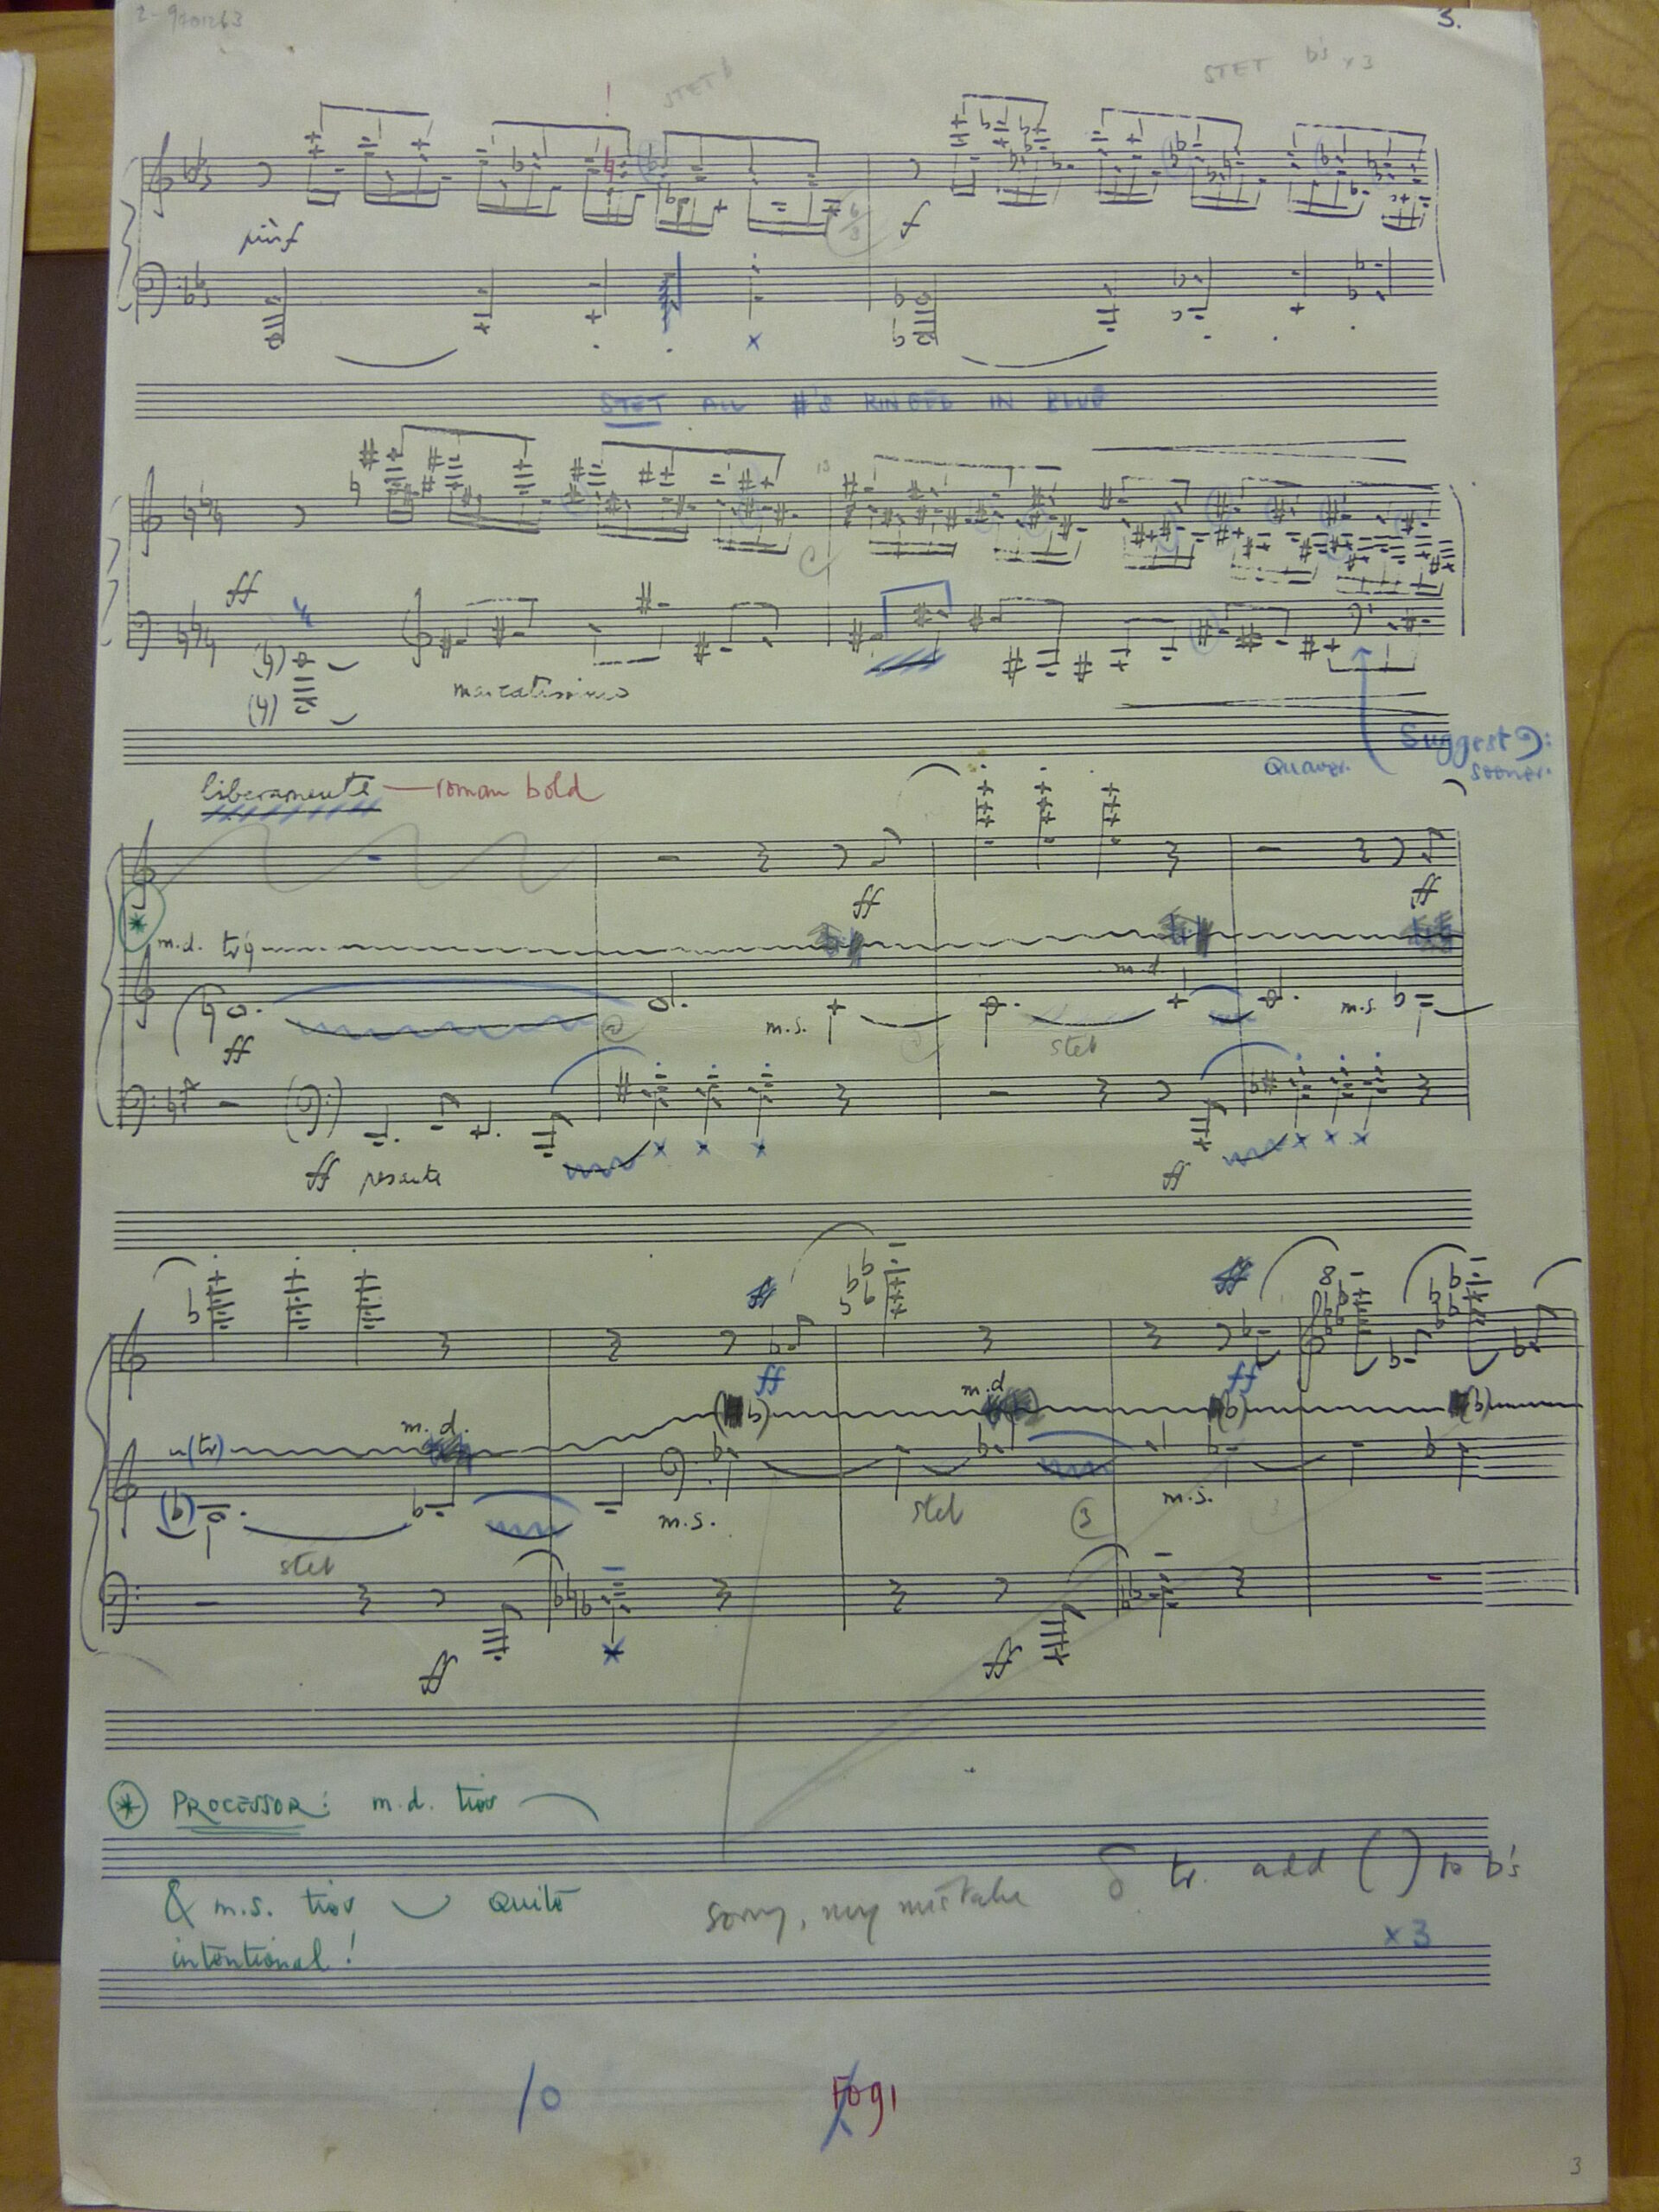 3.
STET b
STET b's x 3
più f
6/3
f
STET ALL #'S RINGED IN BLUE
13
ff
marcatissimo
Suggest 𝄢:
Quaver.
sooner.
liberamente — roman bold
ff
ff
*
m.d. tr
m.d.
ff
m.s.
stet
m.s.
ff pesante
ff
ff
ff
8
ff
ff
m.d.
m.d
(tr)
stet
m.s.
stet
3
m.s.
ff
ff
* PROCESSOR: m.d. ties
& m.s. ties quite
intentional!
sorry, my mistake
tr. add ( ) to b's
x 3
10
3